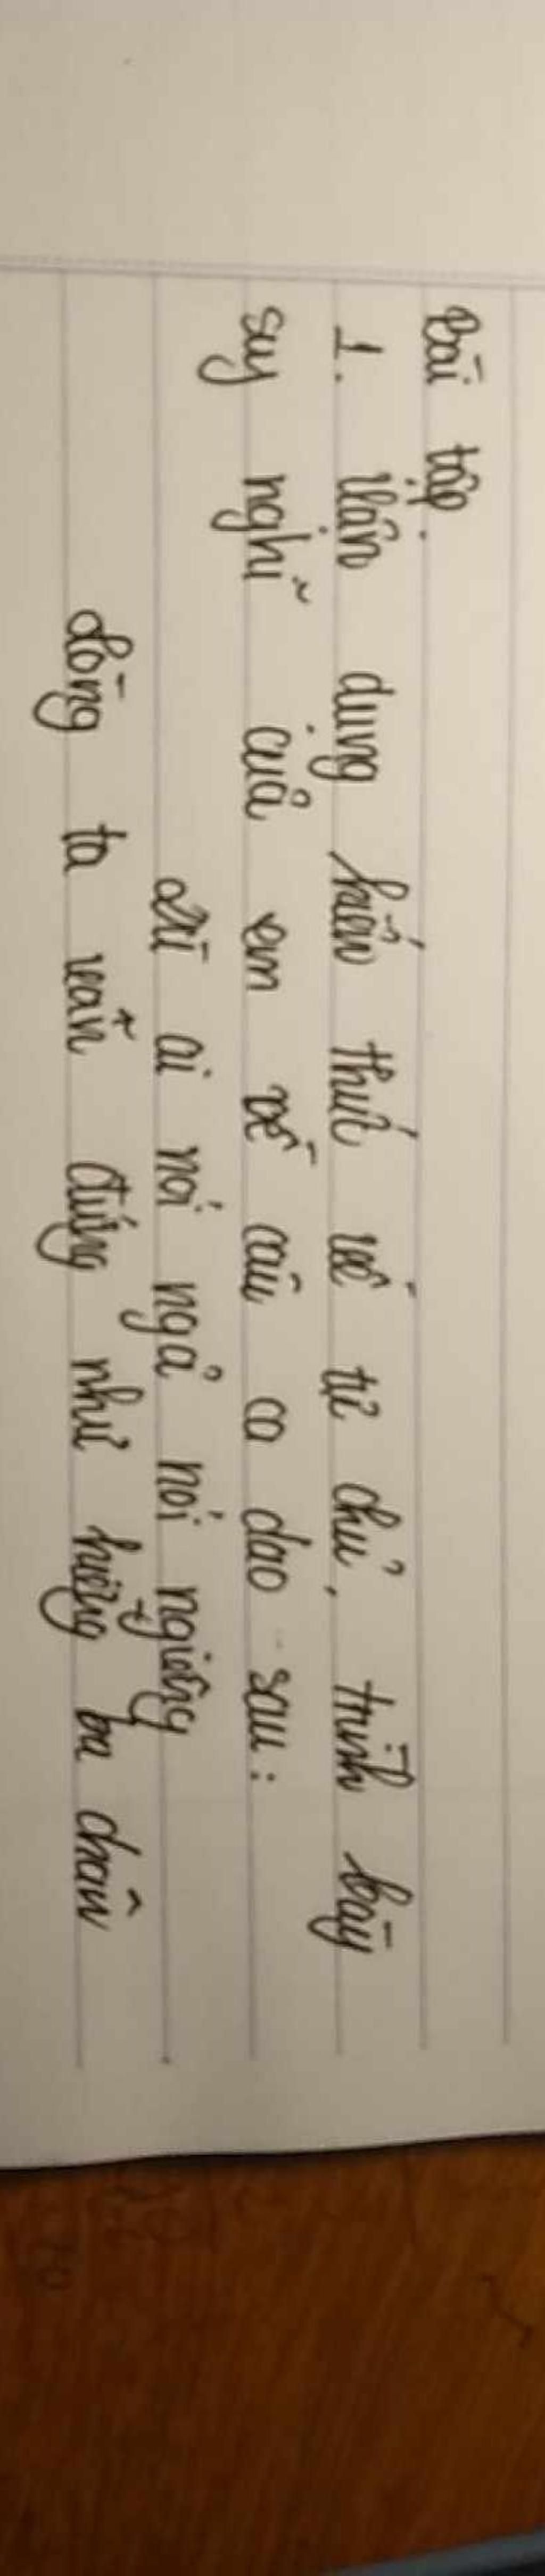 Bài tập.
1. Vận dụng kiến thức về tự chủ, trình bày
suy nghĩ của em về câu ca dao sau:
Dù ai nói ngả nói nghiêng
Lòng ta vẫn đứng như kiềng ba chân